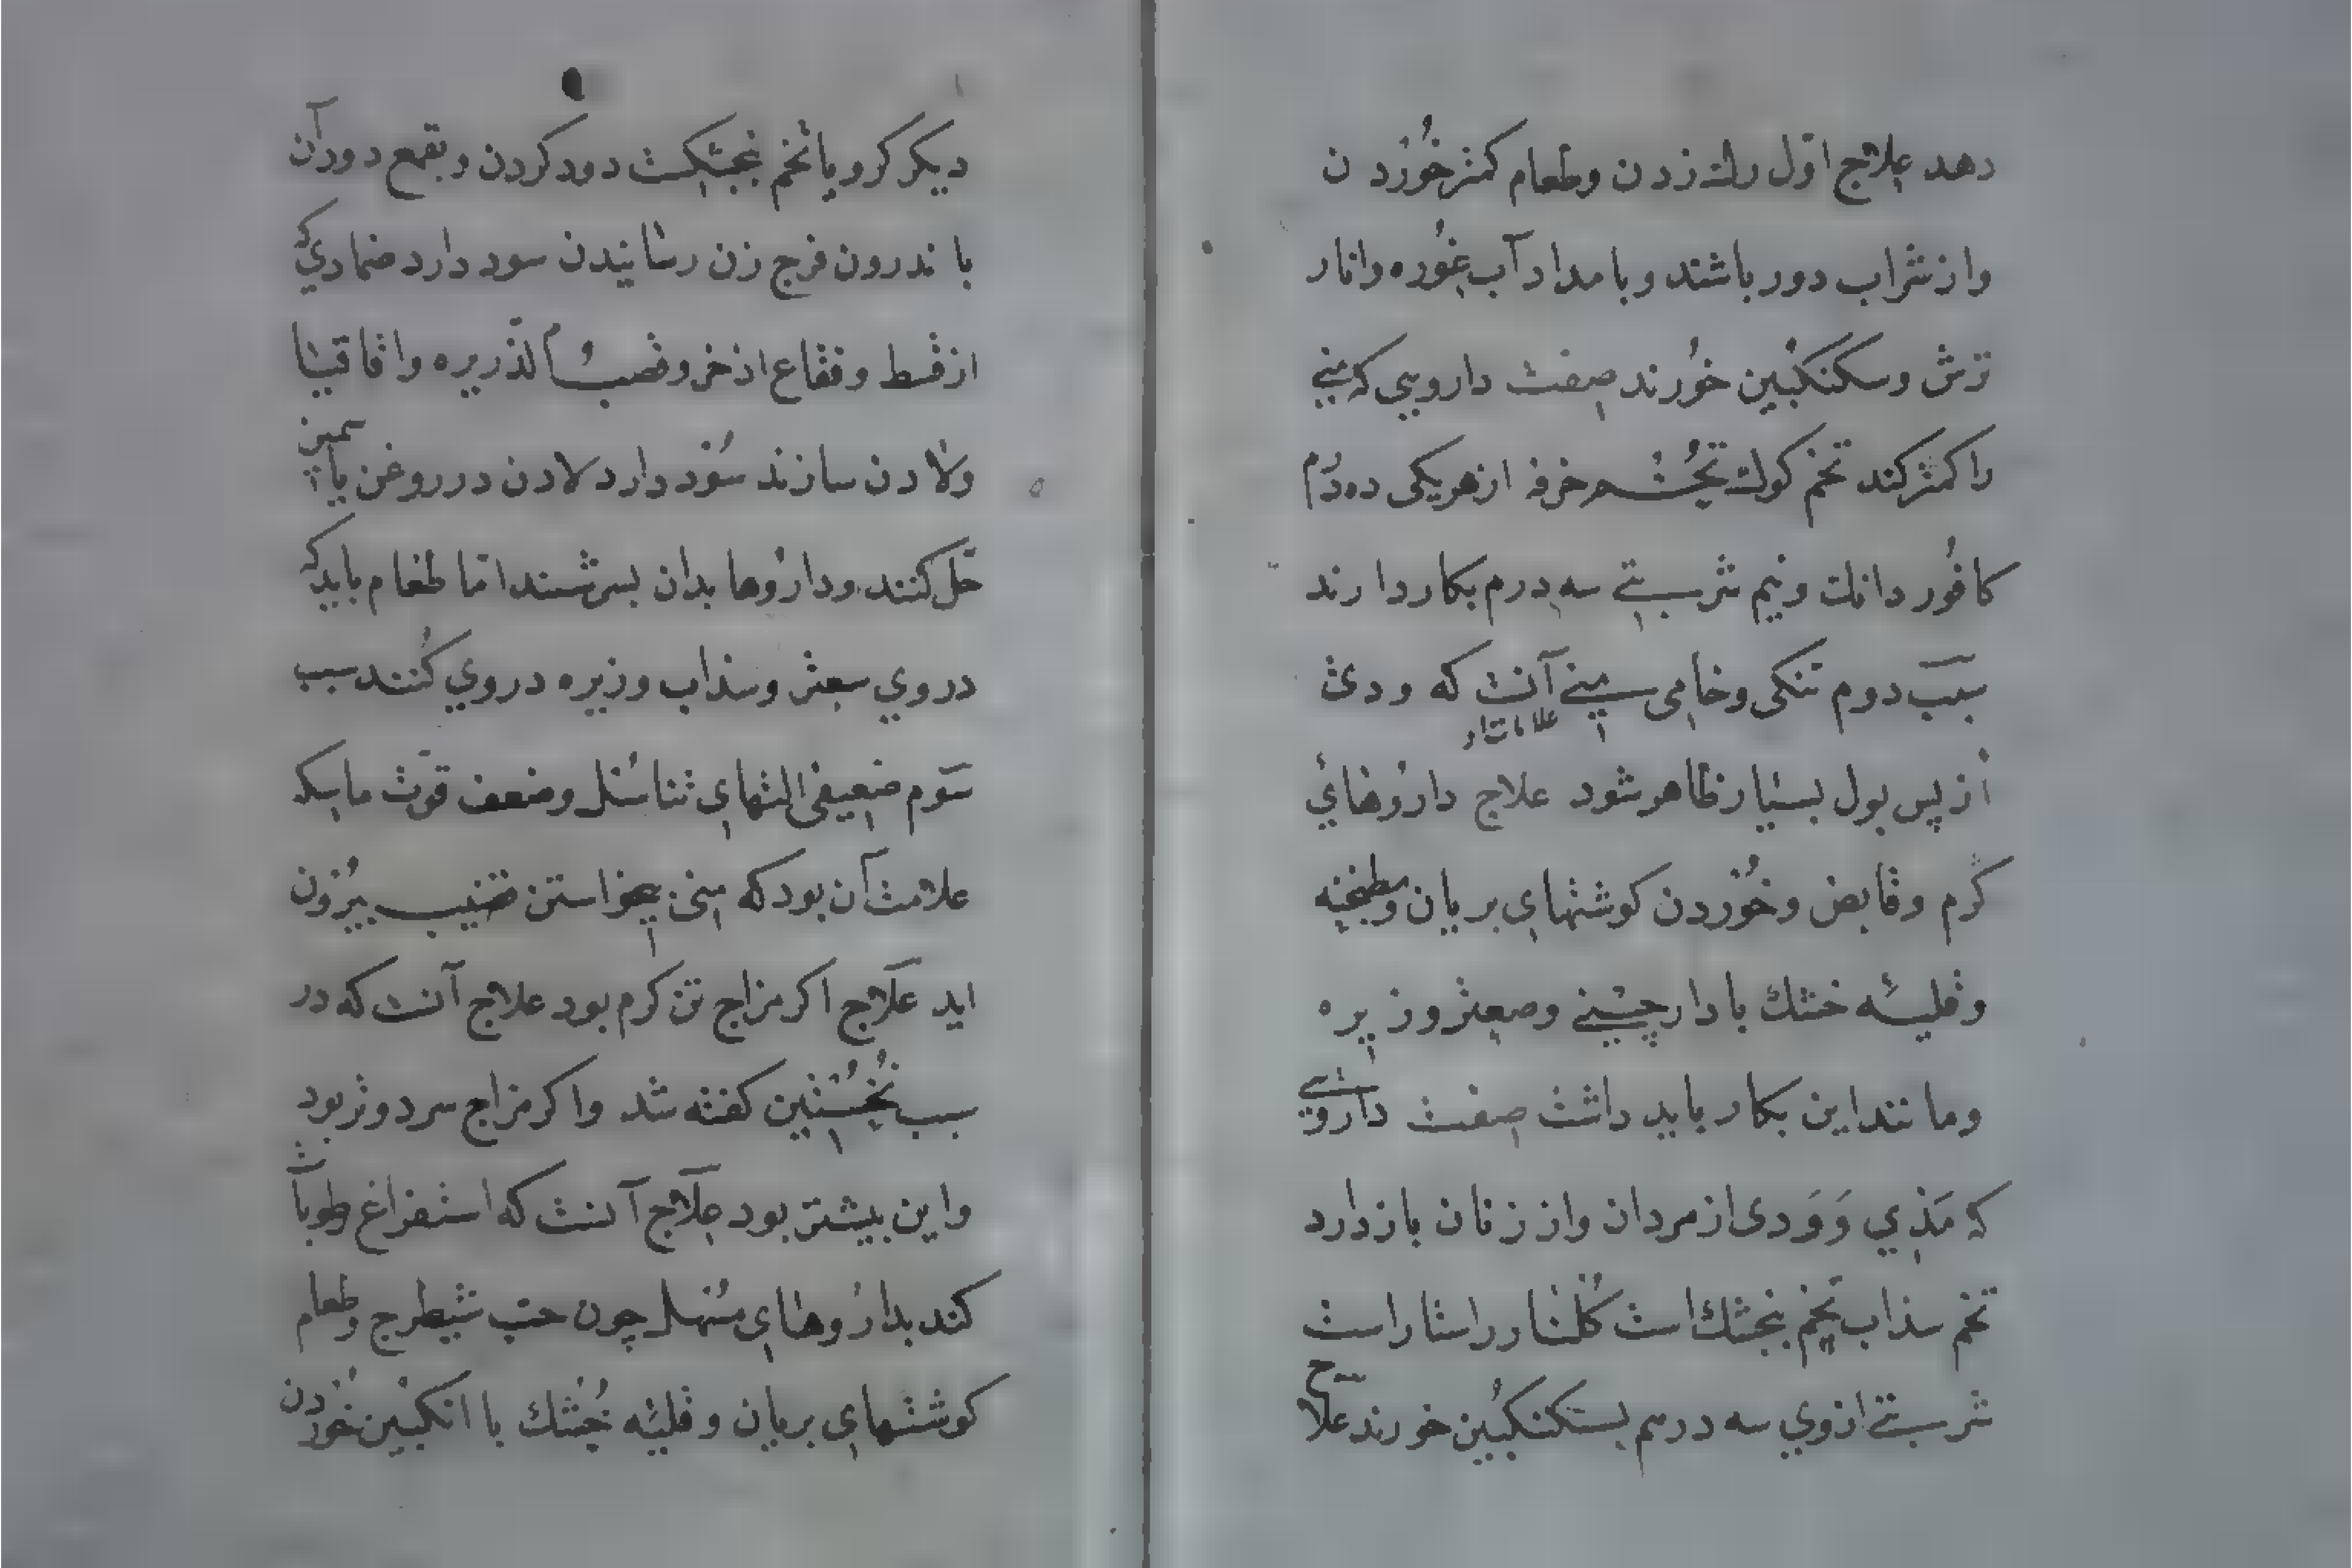 دهد علاج اول رك زدن وطعام كمتر خوردن
واز شراب دور باشند وبامداد آب غوره وانار
ترش وسكنكبين خورند صفت دارويي كه مني
را كمتر كند تخم كوك تخم خرفه از هريكى ده درم
كافور دانك ونيم شربتي سه درم بكار دارند
سبب دوم تنكى وخامى مني آنست كه ودى
علامات او
از پس بول بسيار ظاهر شود علاج داروهائي
كرم وقابض وخوردن كوشتهاي بريان ومطبخنه
وقليه خشك با دارچيني وصعتر وزيره
ومانند اين بكار بايد داشت صفت داروئي
كه مذي وودى از مردان واز زنان باز دارد
تخم سذاب تخم بنجشك است كلنار راستاراست
شربتي از وي سه درم بسكنكبين خورند علاج
ديكر كرويا تخم بنجنكشت دود كردن وبقمع دود آن
باندرون فرج زن رسانيدن سود دارد ضمادي كه
از قسط وفقاع اذخر وقصب الذريره واقاقيا
ولادن سازند سود دارد لادن در روغن ياسمين
حل كنند وداروها بدان بسرشند اما طعام بايد كه
در وي سعتر وسذاب وزيره در وي كنند سبب
سوم ضعيفى التهاي تناسل وضعف قوت ماسكه
علامت آن بود كه مني بيخواستن قضيب بيرون
ايد علاج اكر مزاج تن كرم بود علاج آنست كه در
سبب نخستين كفته شد واكر مزاج سرد وتر بود
واين بيشتر بود علاج آنست كه استفراغ رطوبات
كند بداروهاي مسهل چون حب شيطرج وطعام
كوشتهاي بريان وقليه خشك با انكبين خوردن